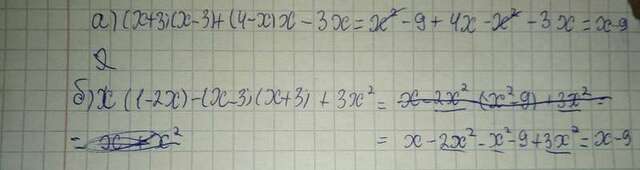 а) (x+3)(x-3)+(4-x)x-3x=x²-9+4x-x²-3x=x-9
б) x(1-2x)-(x-3)(x+3)+3x²= x-2x²-(x²-9)+3x²=
= x+x² = x-2x²-x²-9+3x²=x-9